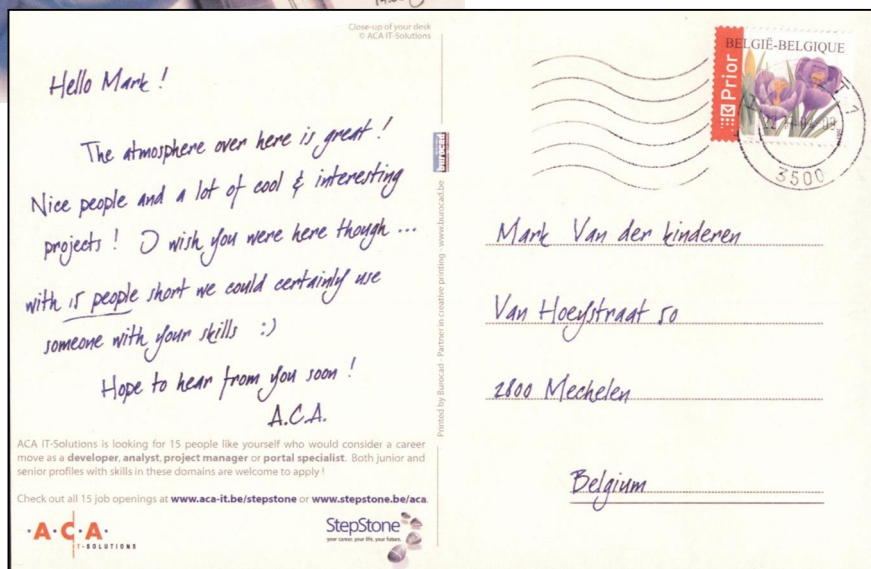 Close-up of your desk
© ACA IT-Solutions
Hello Mark !
The atmosphere over here is great !
Nice people and a lot of cool & interesting
projects ! I wish you were here though ...
with 15 people short we could certainly use
someone with your skills :)
Hope to hear from you soon !
A.C.A.
ACA IT-Solutions is looking for 15 people like yourself who would consider a career
move as a developer, analyst, project manager or portal specialist. Both junior and
senior profiles with skills in these domains are welcome to apply !
Check out all 15 job openings at www.aca-it.be/stepstone or www.stepstone.be/aca.
·A·C·A·
IT-SOLUTIONS
StepStone
your career. your life. your future.
burocad
Printed by Burocad - Partner in creative printing - www.burocad.be
BELGIË-BELGIQUE
Prior
3500
Mark Van der kinderen
Van Hoeystraat 50
2800 Mechelen
Belgium